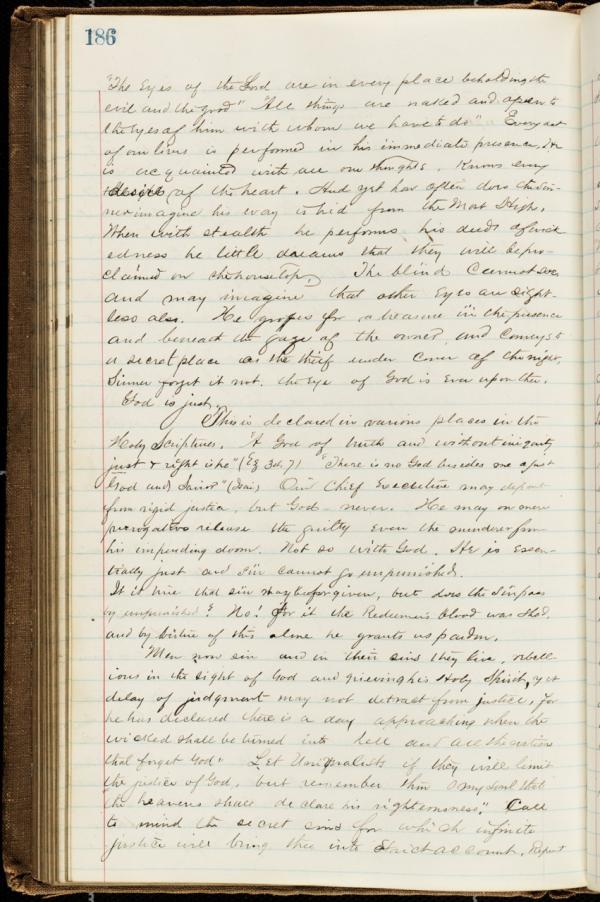 186
"The Eyes of the Lord are in every place beholding the
evil and the good" "All things are naked and open to
the eyes of him with whom we have to do" Every act
of our lives is performed in his immediate presence, He
is acquainted with all our thoughts. Knows every
desire of the heart. And yet how often does the sin-
ner imagine his way is hid from the Most High.
When with stealth he performs his deeds of wick
edness he little dreams that they will be pro-
claimed on the housetop. The blind cannot see
and may imagine that other Eyes are sight-
less also. He gropes for a treasure in the presence
and beneath the gaze of the owner, and conveys to
a secret place as the thief under cover of the night.
Sinner forget it not, the eye of God is Ever upon thee.
God is just.
This is declared in various places in the
Holy Scriptures. "A God of truth and without iniquity
just & right is he" "There is no God besides me a just
God and Savior" (Isai) Our Chief Executive may depart
from rigid justice, but God never. He may on mere
prerogative release the guilty even the murderer from
his impending doom. Not so with God. He is Essen-
tially just and Sin cannot go unpunished.
It is true that sin may be forgiven, but does the Sin pass
by unpunished? No! for it the Redeemer's blood was shed.
and by virtue of this alone he grants us pardon.
Men now sin and in their sins they live, rebell
ious in the sight of God and grieving his Holy Spirit, yet
delay of judgment may not detract from justice, for
he has declared there is a day approaching when the
wicked shall be turned into hell and all the nations
that forget God" Let Universalists if they will limit
the justice of God, but remember thou O my soul that
"the heavens shall declare his righteousness". Call
to mind the secret sins for which infinite
justice will bring thee into strict account. Repent